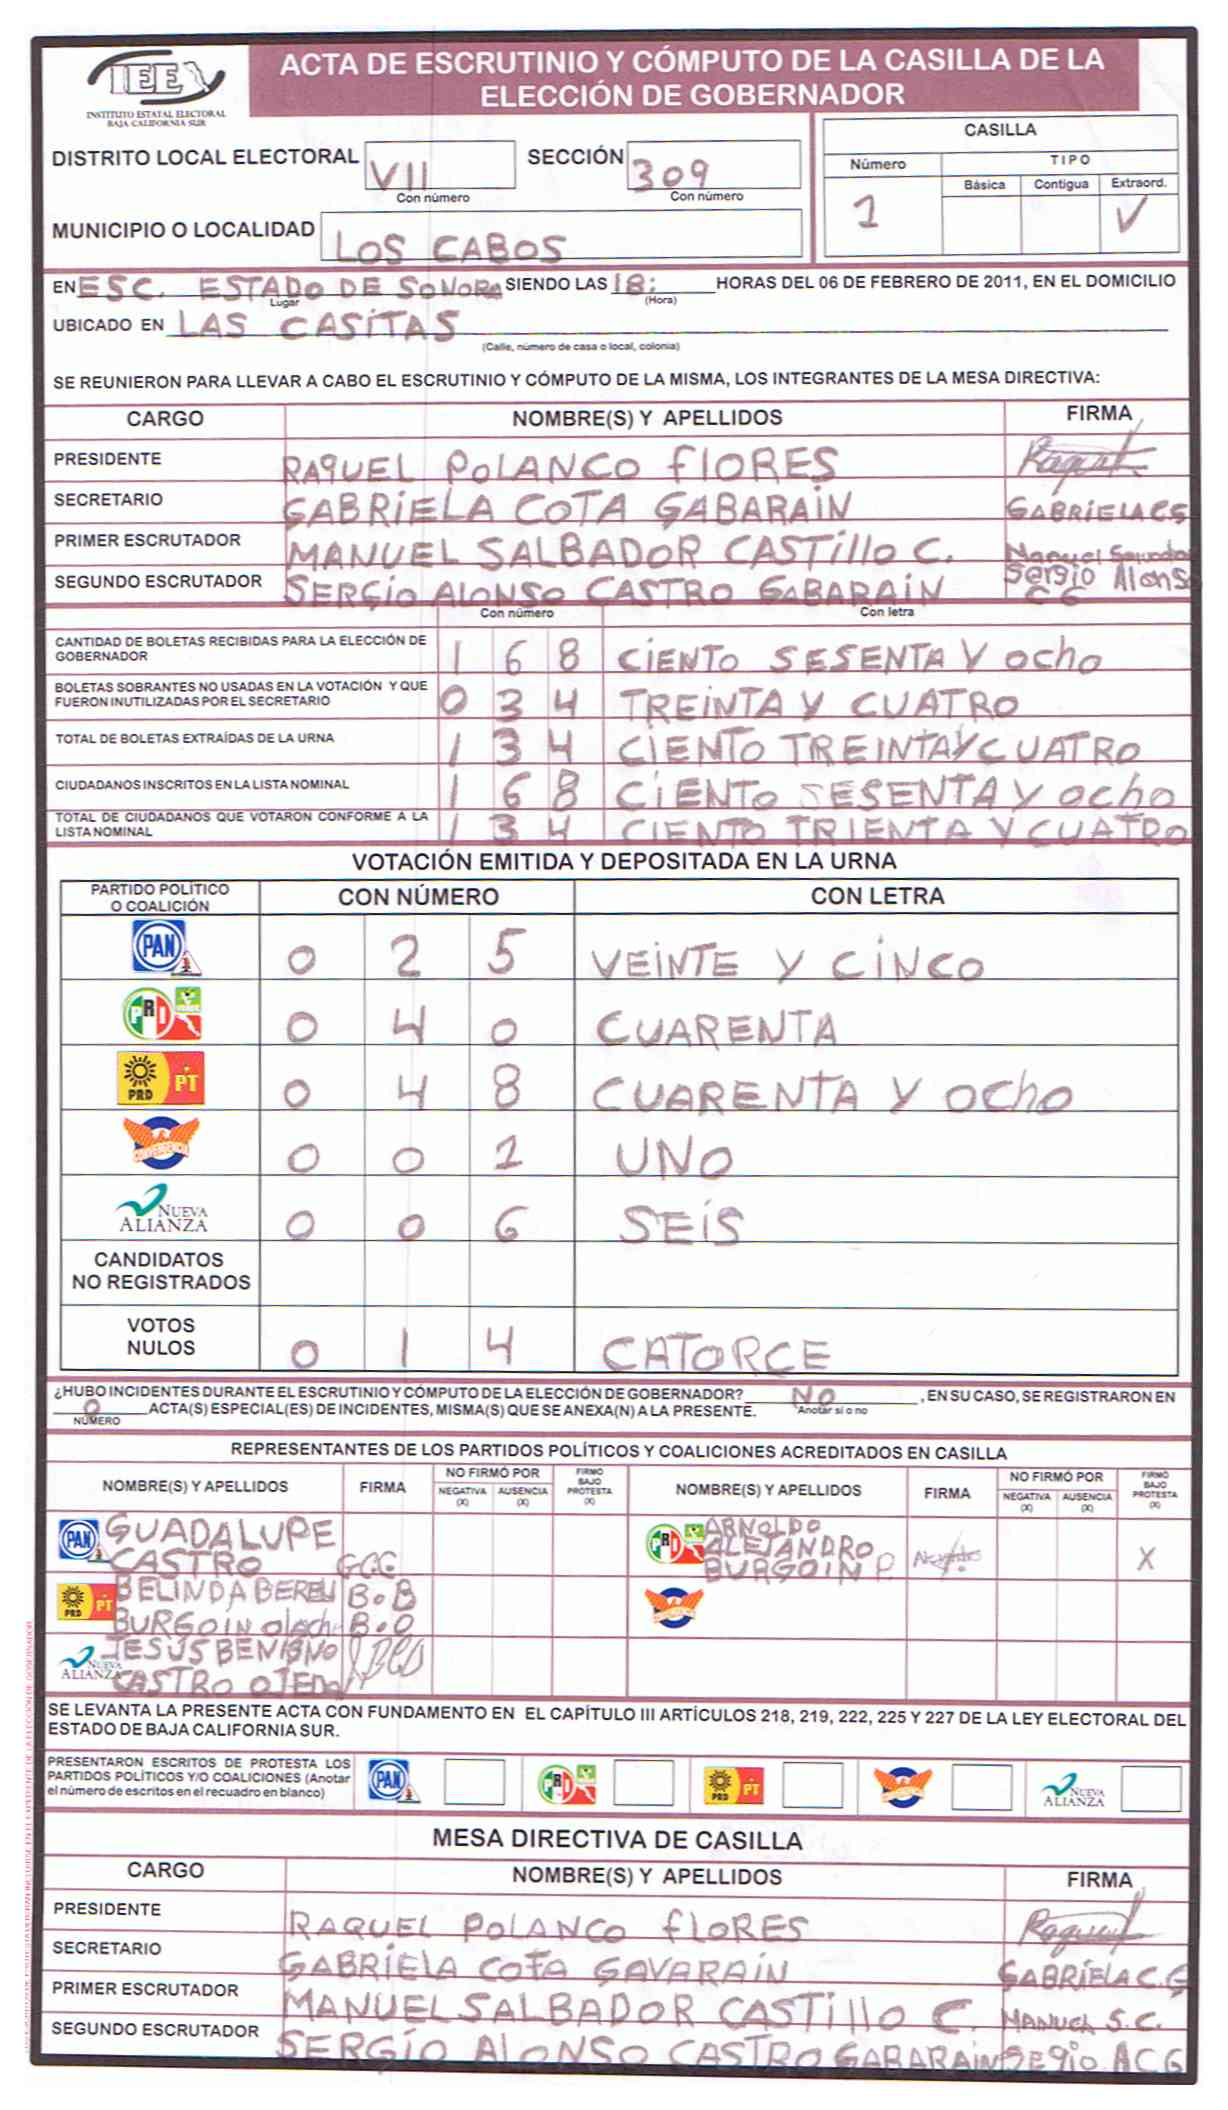 IEE
INSTITUTO ESTATAL ELECTORAL
BAJA CALIFORNIA SUR
ACTA DE ESCRUTINIO Y CÓMPUTO DE LA CASILLA DE LA
ELECCIÓN DE GOBERNADOR
DISTRITO LOCAL ELECTORAL VII SECCIÓN 309
Con número Con número
MUNICIPIO O LOCALIDAD LOS CABOS
CASILLA
Número TIPO
Básica Contigua Extraord.
1 ✓
EN ESC. ESTADO DE SONORA SIENDO LAS 18: HORAS DEL 06 DE FEBRERO DE 2011, EN EL DOMICILIO
Lugar (Hora)
UBICADO EN LAS CASITAS
(Calle, número de casa o local, colonia)
SE REUNIERON PARA LLEVAR A CABO EL ESCRUTINIO Y CÓMPUTO DE LA MISMA, LOS INTEGRANTES DE LA MESA DIRECTIVA:
CARGO NOMBRE(S) Y APELLIDOS FIRMA
PRESIDENTE RAQUEL POLANCO FLORES Raquel
SECRETARIO GABRIELA COTA GABARAIN GABRIELA C G
PRIMER ESCRUTADOR MANUEL SALBADOR CASTILLO C. Manuel Salvador
SEGUNDO ESCRUTADOR SERGIO ALONSO CASTRO GABARAIN Sergio Alonso C G
Con número Con letra
CANTIDAD DE BOLETAS RECIBIDAS PARA LA ELECCIÓN DE
GOBERNADOR 1 6 8 CIENTO SESENTA Y OCHO
BOLETAS SOBRANTES NO USADAS EN LA VOTACIÓN Y QUE
FUERON INUTILIZADAS POR EL SECRETARIO 0 3 4 TREINTA Y CUATRO
TOTAL DE BOLETAS EXTRAÍDAS DE LA URNA 1 3 4 CIENTO TREINTA Y CUATRO
CIUDADANOS INSCRITOS EN LA LISTA NOMINAL 1 6 8 CIENTO SESENTA Y OCHO
TOTAL DE CIUDADANOS QUE VOTARON CONFORME A LA
LISTA NOMINAL 1 3 4 CIENTO TRIENTA Y CUATRO
VOTACIÓN EMITIDA Y DEPOSITADA EN LA URNA
PARTIDO POLÍTICO
O COALICIÓN CON NÚMERO CON LETRA
PAN 0 2 5 VEINTE Y CINCO
PRI VERDE 0 4 0 CUARENTA
PRD PT 0 4 8 CUARENTA Y OCHO
CONVERGENCIA 0 0 1 UNO
NUEVA ALIANZA 0 0 6 SEIS
CANDIDATOS
NO REGISTRADOS
VOTOS
NULOS 0 1 4 CATORCE
¿HUBO INCIDENTES DURANTE EL ESCRUTINIO Y CÓMPUTO DE LA ELECCIÓN DE GOBERNADOR? NO , EN SU CASO, SE REGISTRARON EN
0 ACTA(S) ESPECIAL(ES) DE INCIDENTES, MISMA(S) QUE SE ANEXA(N) A LA PRESENTE. Anotar sí o no
NÚMERO
REPRESENTANTES DE LOS PARTIDOS POLÍTICOS Y COALICIONES ACREDITADOS EN CASILLA
NOMBRE(S) Y APELLIDOS FIRMA NO FIRMÓ POR NEGATIVA (X) AUSENCIA (X) FIRMÓ BAJO PROTESTA (X) NOMBRE(S) Y APELLIDOS FIRMA NO FIRMÓ POR NEGATIVA (X) AUSENCIA (X) FIRMÓ BAJO PROTESTA (X)
PAN GUADALUPE CASTRO G.C.G PRI ARNOLDO ALEJANDRO BURGOIN P. X
PRD PT BELINDA BURGOIN B.B B.O
NUEVA ALIANZA JESUS BENIGNO CASTRO OJEDA
SE LEVANTA LA PRESENTE ACTA CON FUNDAMENTO EN EL CAPÍTULO III ARTÍCULOS 218, 219, 222, 225 Y 227 DE LA LEY ELECTORAL DEL
ESTADO DE BAJA CALIFORNIA SUR.
PRESENTARON ESCRITOS DE PROTESTA LOS
PARTIDOS POLÍTICOS Y/O COALICIONES (Anotar
el número de escritos en el recuadro en blanco) PAN PRI PRD PT NUEVA ALIANZA
MESA DIRECTIVA DE CASILLA
CARGO NOMBRE(S) Y APELLIDOS FIRMA
PRESIDENTE RAQUEL POLANCO FLORES Raquel
SECRETARIO GABRIELA COTA GAVARAIN GABRIELA C.G
PRIMER ESCRUTADOR MANUEL SALBADOR CASTILLO C. MANUEL S.C.
SEGUNDO ESCRUTADOR SERGIO ALONSO CASTRO GABARAIN SEgio ACG